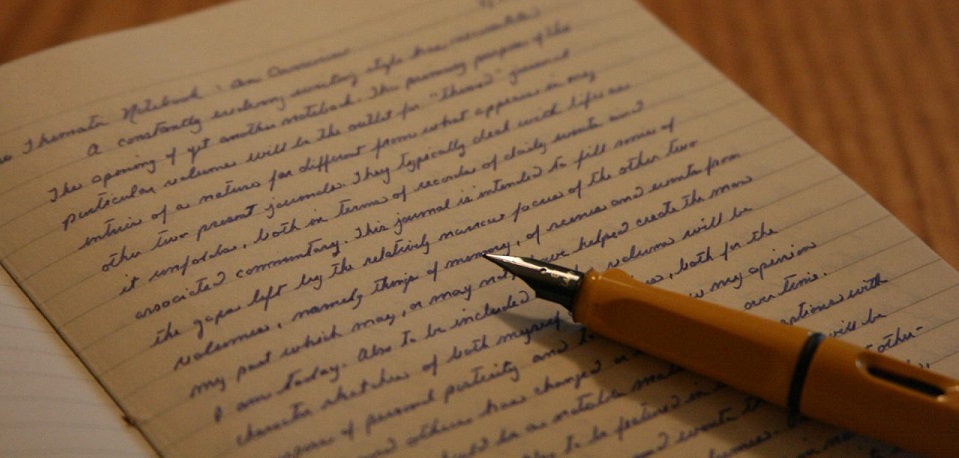 Thematic Notebook: An Overview
A constantly evolving writing style has necessitated
the opening of yet another notebook. The primary purpose of this
particular volume will be the outlet for "themed" journal
entries of a nature far different from what appears in my
other two present journals. They typically deal with life as
it unfolds, both in terms of records of daily events and
associated commentary. This journal is intended to fill some of
the gaps left by the relatively narrow focus of the other two
volumes, namely things of memory, of scenes and events from
my past which may, or may not, have helped create the man
I am today. Also to be included volume will be
character sketches of both myself , both for the
of personal posterity and my opinion
and others have changed over time.
be a notable
to be featured with
will be
other-